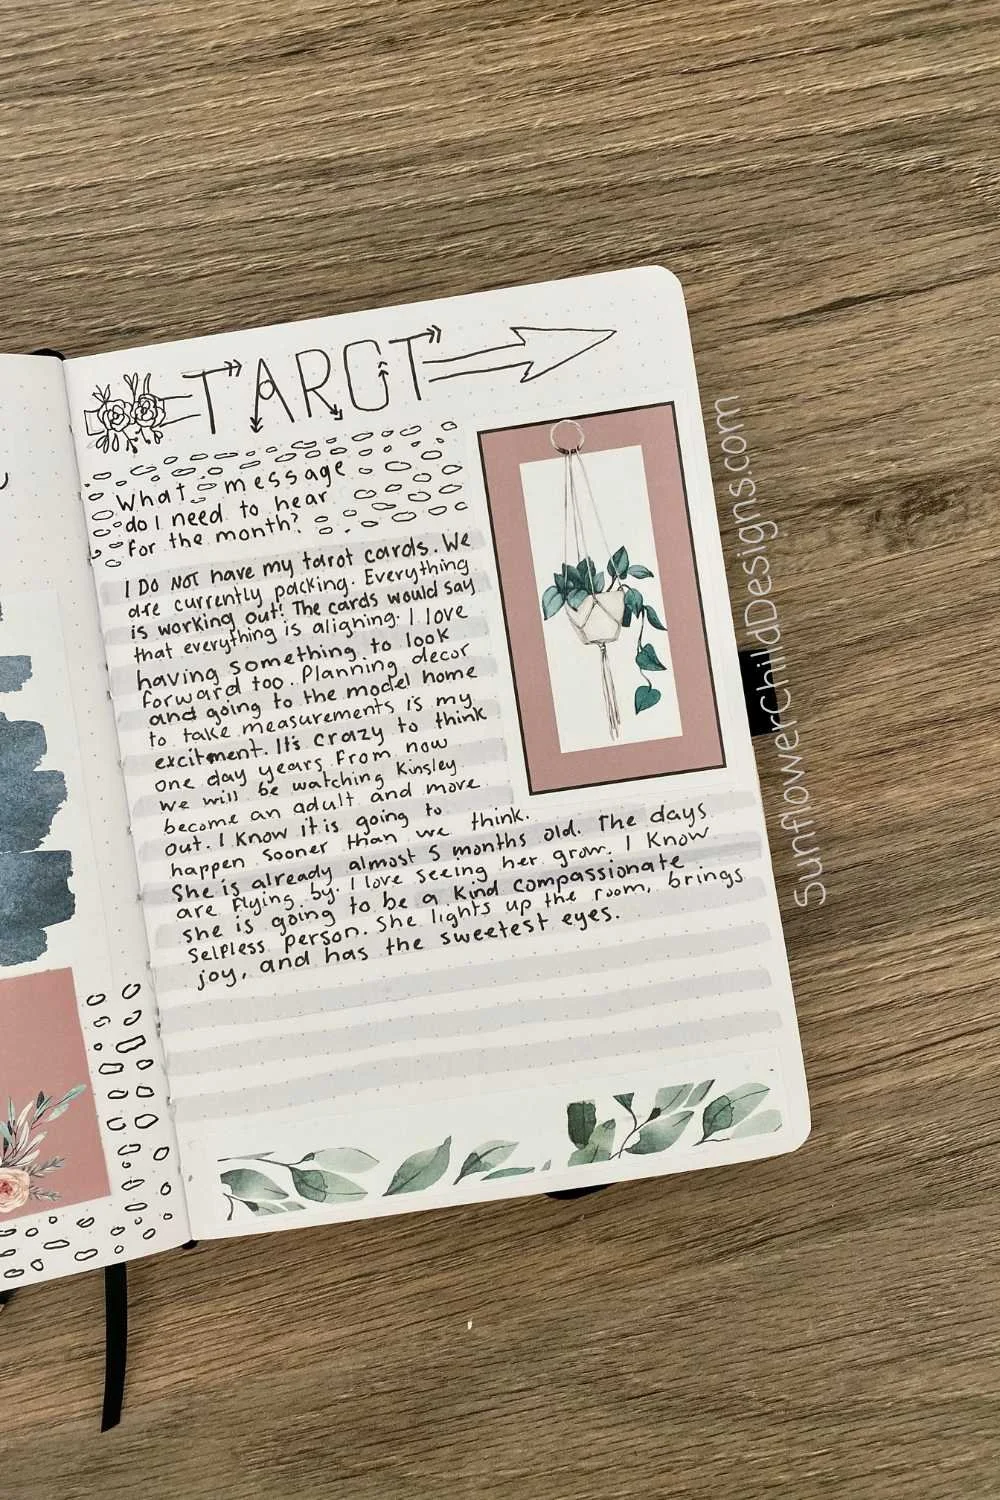 TAROT
What message
do I need to hear
for the month?
I DO NOT have my tarot cards. We
are currently packing. Everything
is working out! The cards would say
that everything is aligning. I love
having something to look
forward too. Planning decor
and going to the model home
to take measurements is my
excitment. It's crazy to think
one day years from now
we will be watching Kinsley
become an adult and move
out. I know it is going to
happen sooner than we think.
She is already almost 5 months old. The days
are flying by. I love seeing her grow. I know
she is going to be a kind compassionate
selfless person. She lights up the room, brings
joy, and has the sweetest eyes.
SunflowerChildDesigns.com